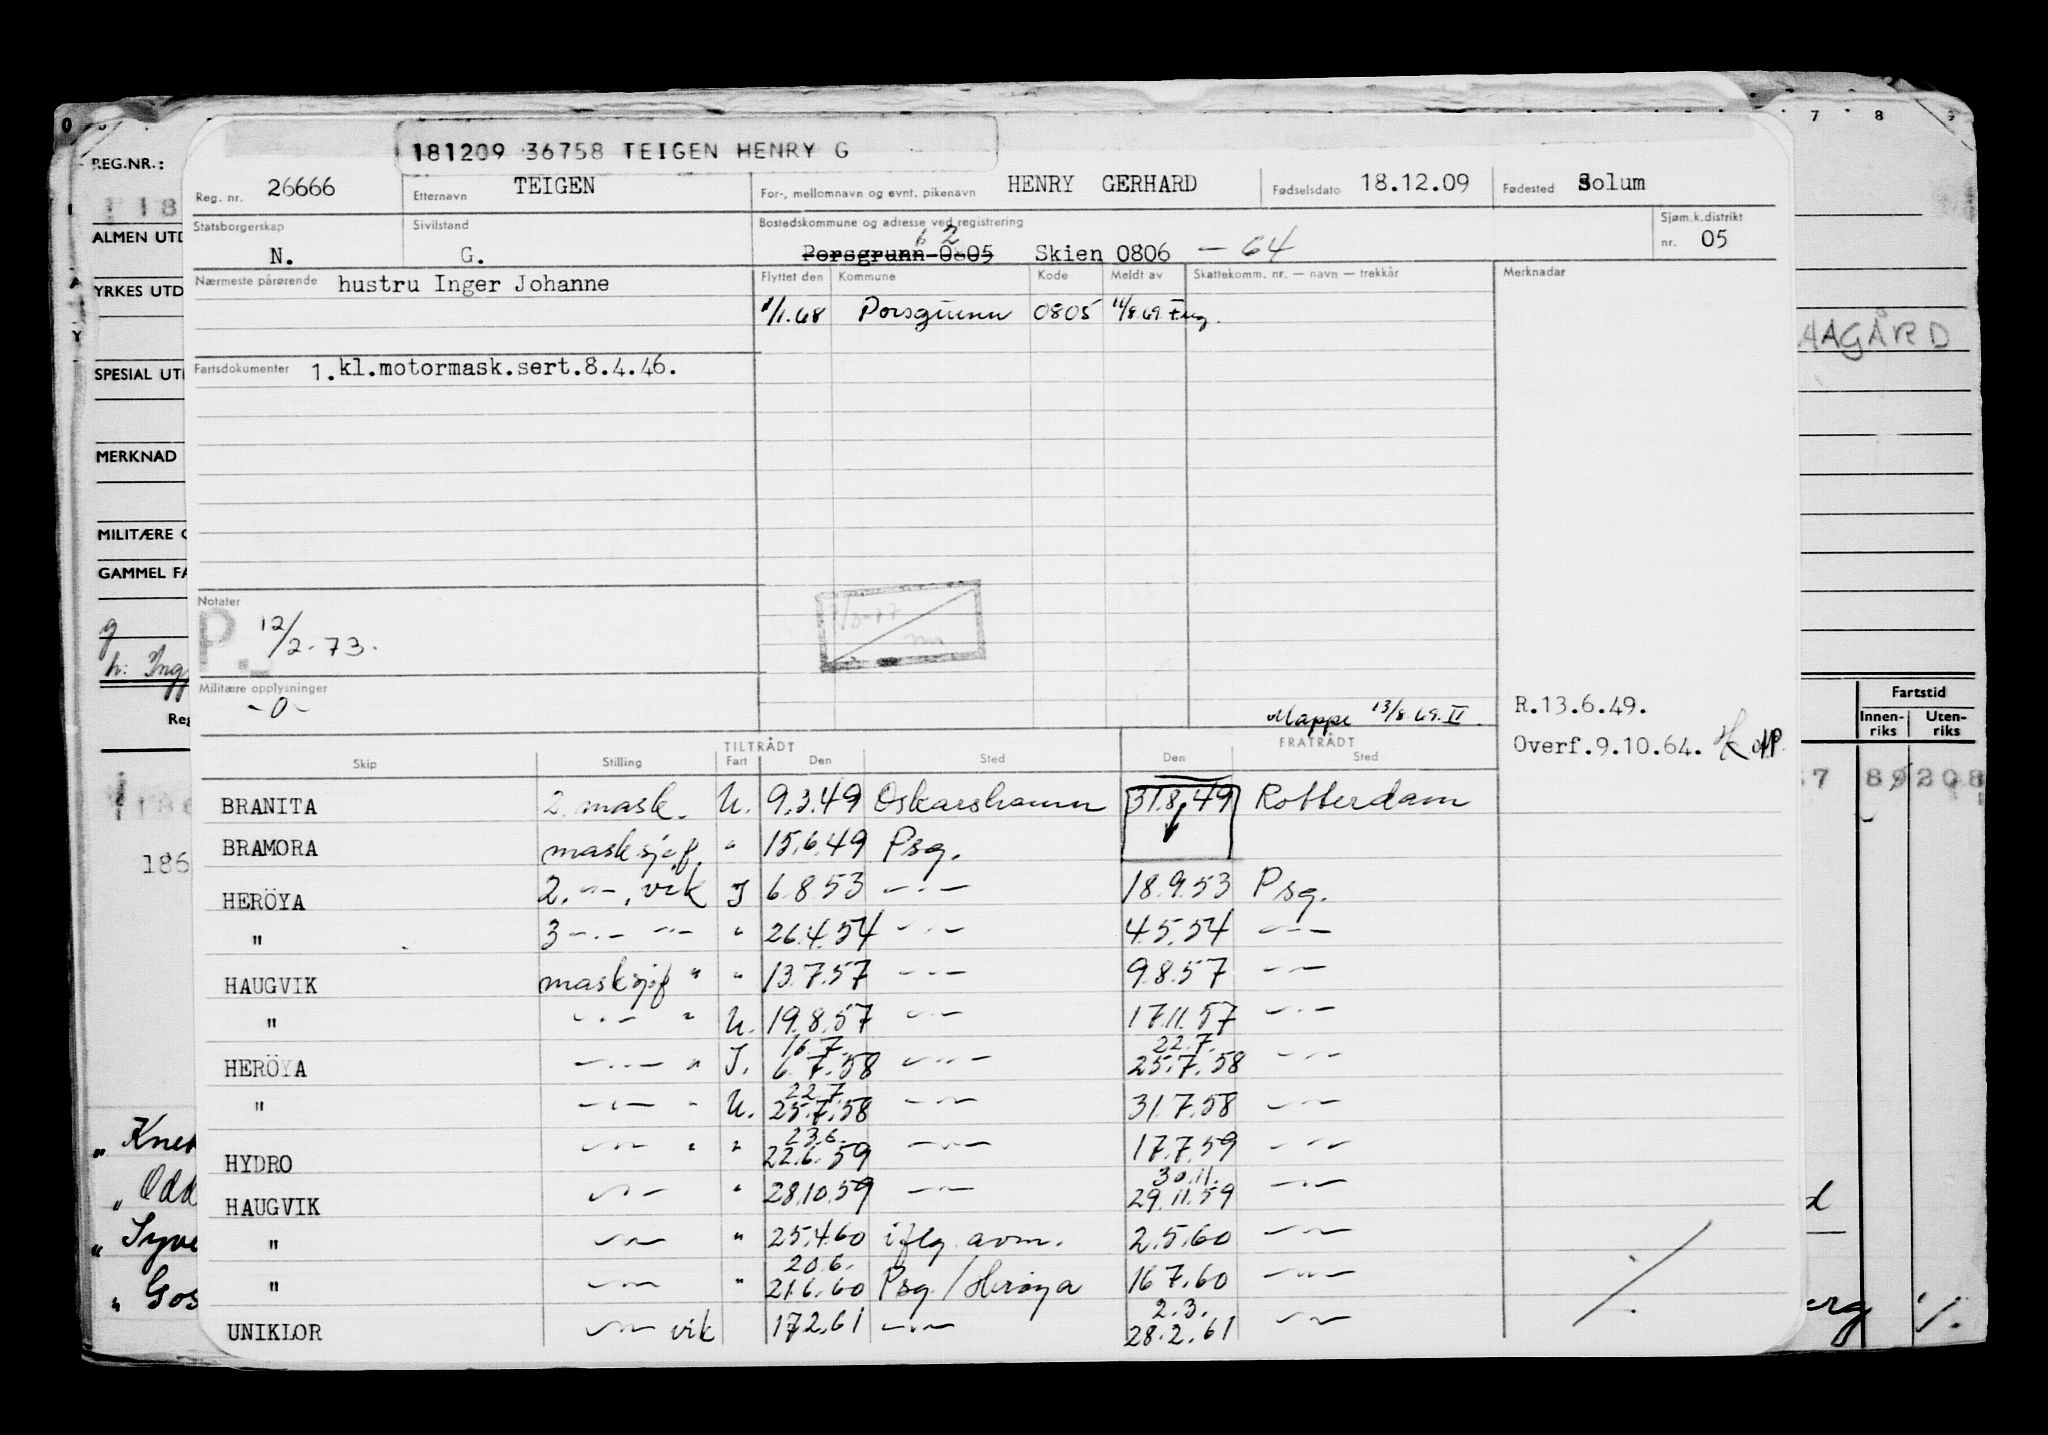 181209 36758 TEIGEN HENRY G
Reg. nr. 26666 Etternavn TEIGEN For-, mellomnavn og evnt. pikenavn HENRY GERHARD Fødselsdato 18.12.09 Fødested Solum
Statsborgerskap N. Sivilstand G. Bostedskommune og adresse ved registrering Porsgrunn 0805 Skien 0806 — 64 Sjøm.k.distrikt nr. 05
Nærmeste pårørende hustru Inger Johanne Flyttet den Kommune Kode Meldt av Skattekomm. nr. — navn — trekkår Merknadar
1/1.68 Porsgrunn 0805 11/8.69
Fartsdokumenter 1.kl.motormask.sert.8.4.46.
Notater
P. 12/2-73.
Militære opplysninger
-0-
Mappe 13/8.69. II
R.13.6.49.
Overf.9.10.64.
TILTRÅDT FRATRÅDT
Skip Stilling Fart Den Sted Den Sted
BRANITA 2 mask. U. 9.3.49 Oskarshamn 31.8.49 Rotterdam
BRAMORA masksjef. " 15.6.49 Psg.
HERÖYA 2. -"- . vik J 6.8.53 -"- 18.9.53 Psg.
" 3 -"- -"- " 26.4.54 -"- 4.5.54 -"-
HAUGVIK masksjef " " 13.7.57 -"- 9.8.57 -"-
" -"- " U. 19.8.57 -"- 17.11.57 -"-
16.7. 22.7.
HERÖYA -"- " J. 6.7.58 -"- 25.7.58 -"-
22.7.
" -"- " U. 25.7.58 -"- 31.7.58 -"-
23.6.
HYDRO -"- " " 22.6.59 -"- 17.7.59 -"-
30.11.
HAUGVIK -"- " 28.10.59 -"- 29.11.59 -"-
" -"- " 25.4.60 iflg. avm. 2.5.60 -"-
20.6.
" -"- " 21.6.60 Psg/Herøya 16.7.60 -"-
2.3.
UNIKLOR -"- vik 17.2.61 -"- 28.2.61 -"-
REG.NR.:
118
ALMEN UTD
YRKES UTD
SPESIAL UT
MERKNAD
MILITÆRE
GAMMEL FA
g
h: Ing
Reg
186
" Knet
" Odd
" Syve
" Gos
7 8
AAGÅRD
Fartstid
Innen-riks Uten-riks
208
erg